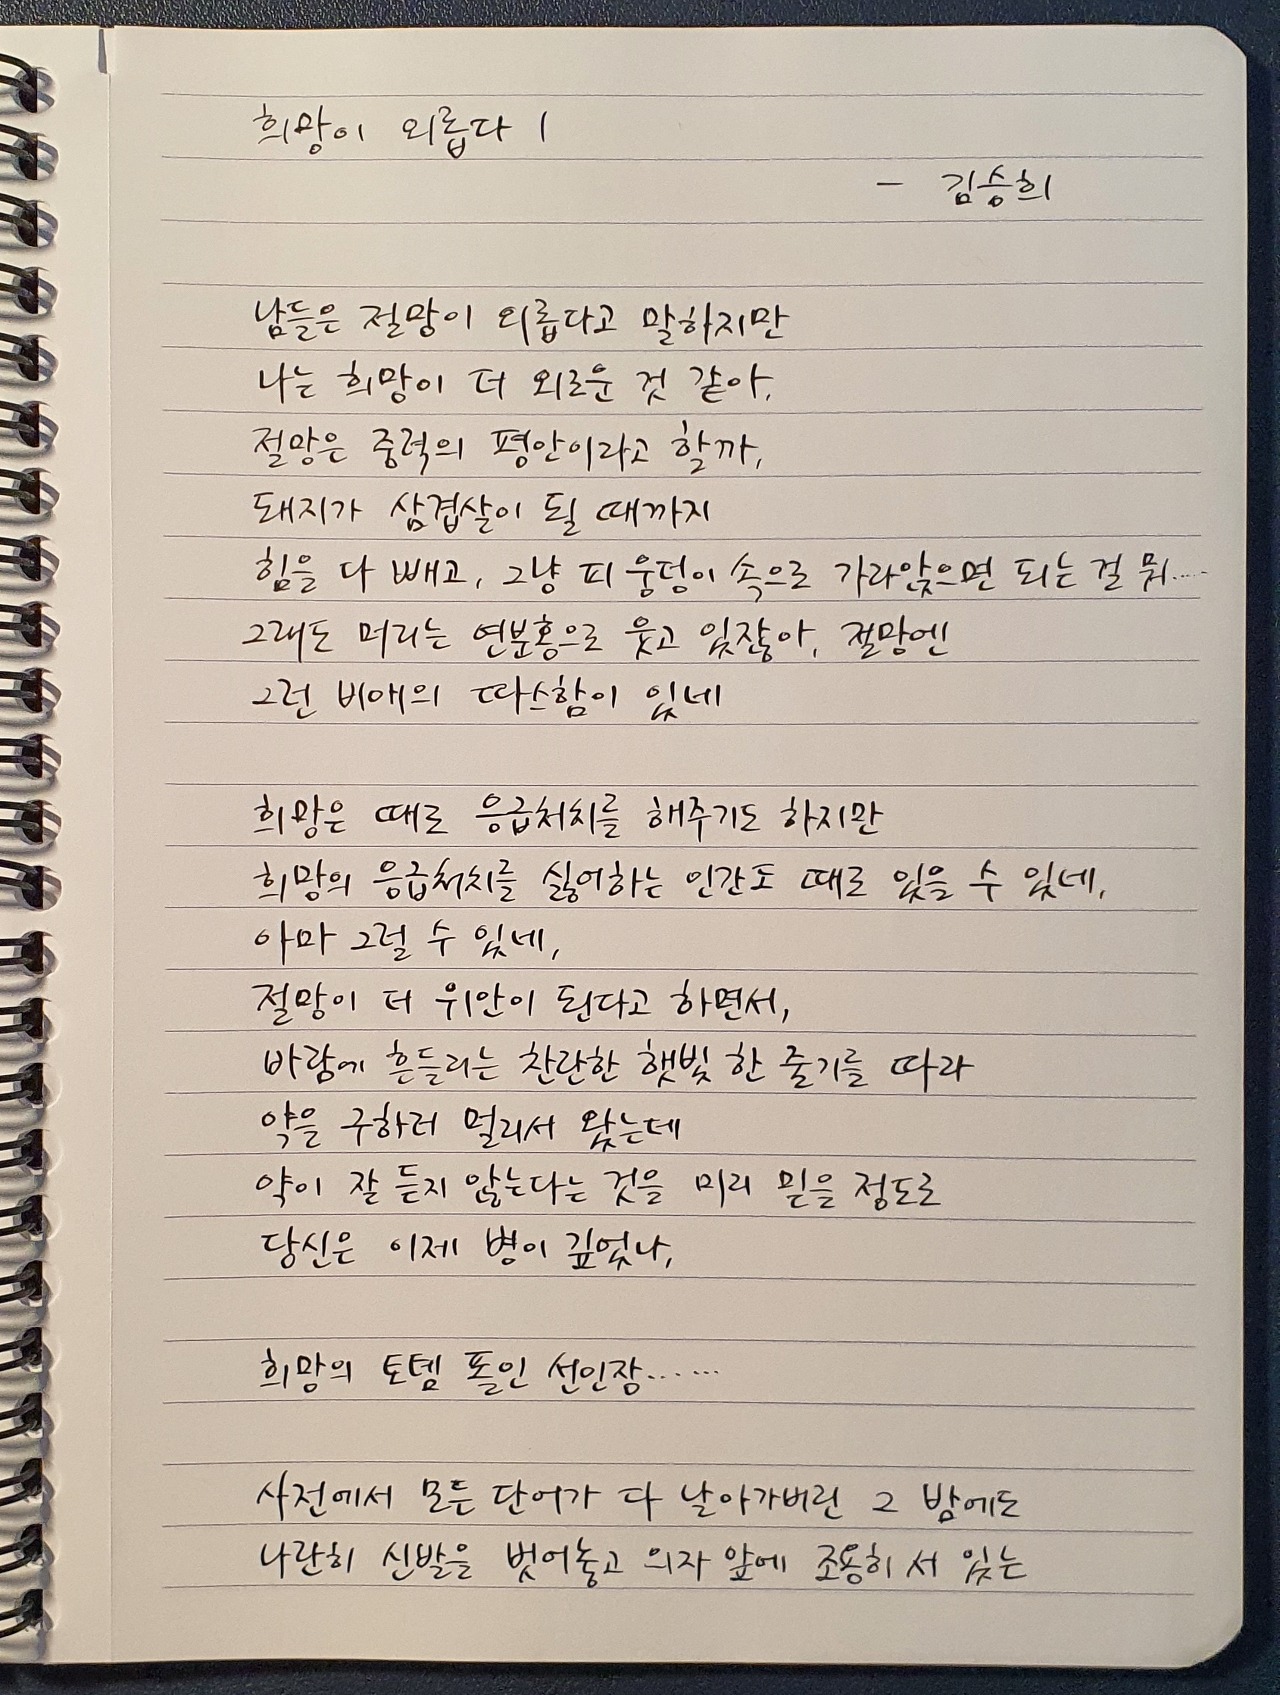 희망이 외롭다 1
- 김승희
남들은 절망이 외롭다고 말하지만
나는 희망이 더 외로운 것 같아,
절망은 중력의 평안이라고 할까,
돼지가 삼겹살이 될 때까지
힘을 다 빼고, 그냥 피 웅덩이 속으로 가라앉으면 되는 걸 뭐……
그래도 머리는 연분홍으로 웃고 있잖아, 절망엔
그런 비애의 따스함이 있네
희망은 때로 응급처치를 해주기도 하지만
희망의 응급처치를 싫어하는 인간도 때로 있을 수 있네,
아마 그럴 수 있네,
절망이 더 위안이 된다고 하면서,
바람에 흔들리는 찬란한 햇빛 한 줄기를 따라
약을 구하러 멀리서 왔는데
약이 잘 듣지 않는다는 것을 미리 믿을 정도로
당신은 이제 병이 깊었나,
희망의 토템 폴인 선인장……
사전에서 모든 단어가 다 날아가버린 그 밤에도
나란히 신발을 벗어놓고 의자 앞에 조용히 서 있는